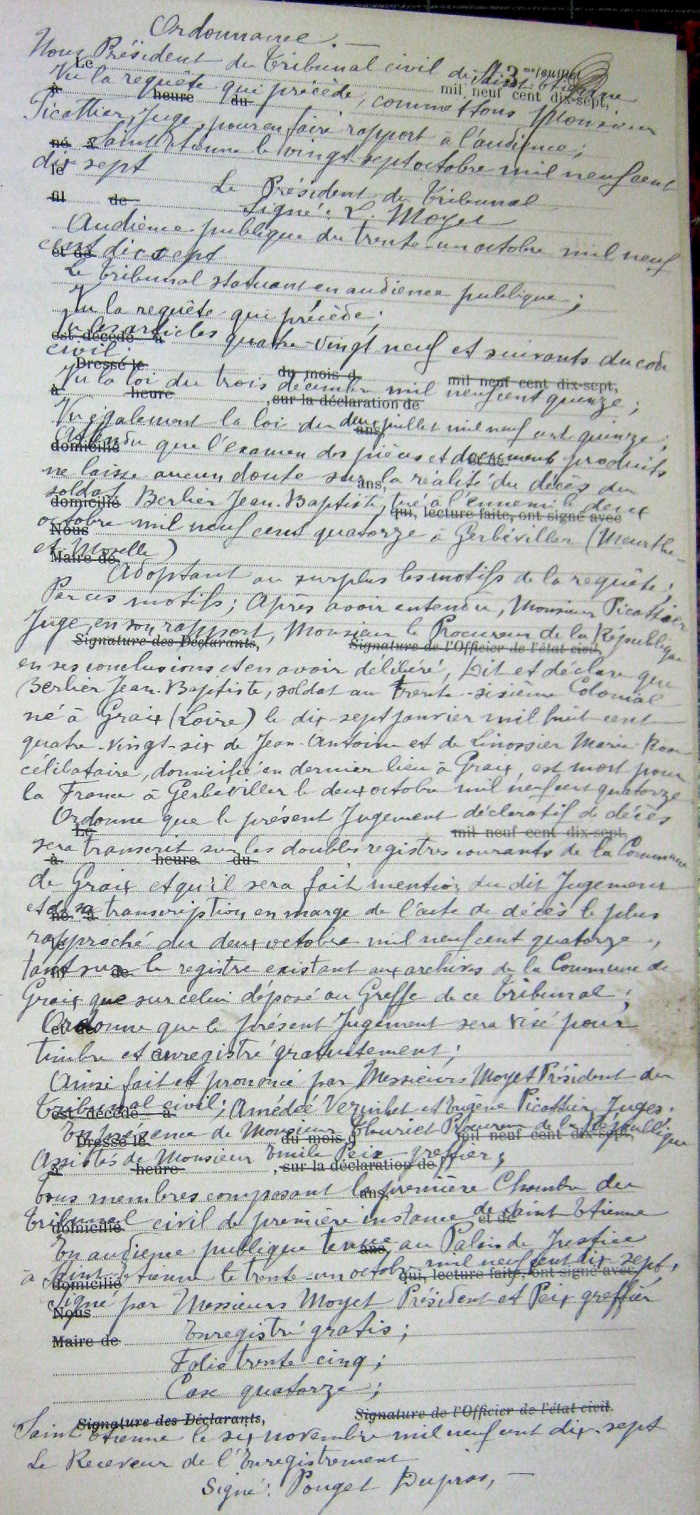 Ordonnance. —
Nous Président du Tribunal civil de Saint Etienne
Vu la requête qui précède, commettons Monsieur
Picattier, Juge, pour en faire rapport à l'audience;
Saint Etienne le vingt sept octobre mil neuf cent
dix sept
Le Président du Tribunal
Signé: L. Moyet
Audience publique du trente-un octobre mil neuf
cent dix sept
Le Tribunal statuant en audience publique;
Vu la requête qui précède;
Vu les articles quatre-vingt neuf et suivants du code
civil
Vu la loi du trois décembre mil neuf cent quinze;
Vu également la loi du deux juillet mil neuf cent quinze;
Attendu que l'examen des pièces et documents produits
ne laisse aucun doute sur la réalité du décès du
soldat Berlier Jean-Baptiste, tué à l'ennemi le deux
octobre mil neuf cent quatorze à Gerbéviller (Meurthe-
et-Moselle)
Adoptant au surplus les motifs de la requête;
Par ces motifs; Après avoir entendu, Monsieur Picattier
Juge en son rapport, Monsieur le Procureur de la République
en ses conclusions et en avoir délibéré, Dit et déclare que
Berlier Jean-Baptiste, soldat au trente-sixième Colonial
né à Graix (Loire) le dix-sept janvier mil huit cent
quatre-vingt-six de Jean-Antoine et de Linossier Marie Rose
célibataire, domicilié en dernier lieu à Graix, est mort pour
la France à Gerbéviller le deux octobre mil neuf cent quatorze
Ordonne que le présent Jugement déclaratif de décès
sera transcrit sur les doubles registres courants de la Commune
de Graix et qu'il sera fait mention du dit Jugement
et de sa transcription en marge de l'acte de décès le plus
rapproché du deux octobre mil neuf cent quatorze,
tant sur le registre existant aux archives de la Commune de
Graix que sur celui déposé au Greffe de ce Tribunal;
Ordonne que le présent Jugement sera visé pour
timbre et enregistré gratuitement;
Ainsi fait et prononcé par Messieurs Moyet Président du
Tribunal civil; Amédée Verinhet et Eugène Picattier Juges.
En présence de Monsieur Procureur de la République
Assistés de Monsieur Emile Peix greffier;
Tous membres composant la première Chambre du
Tribunal civil de première instance de Saint Etienne
En audience publique tenue au Palais de Justice
à Saint Etienne le trente-un octobre mil neuf cent dix sept,
Signé par Messieurs Moyet Président et Peix greffier
Enregistré gratis;
Folio trente cinq;
Case quatorze;
Saint Etienne le six novembre mil neuf cent dix-sept
Le Receveur de l'Enregistrement
Signé: Pouget Dupras, —